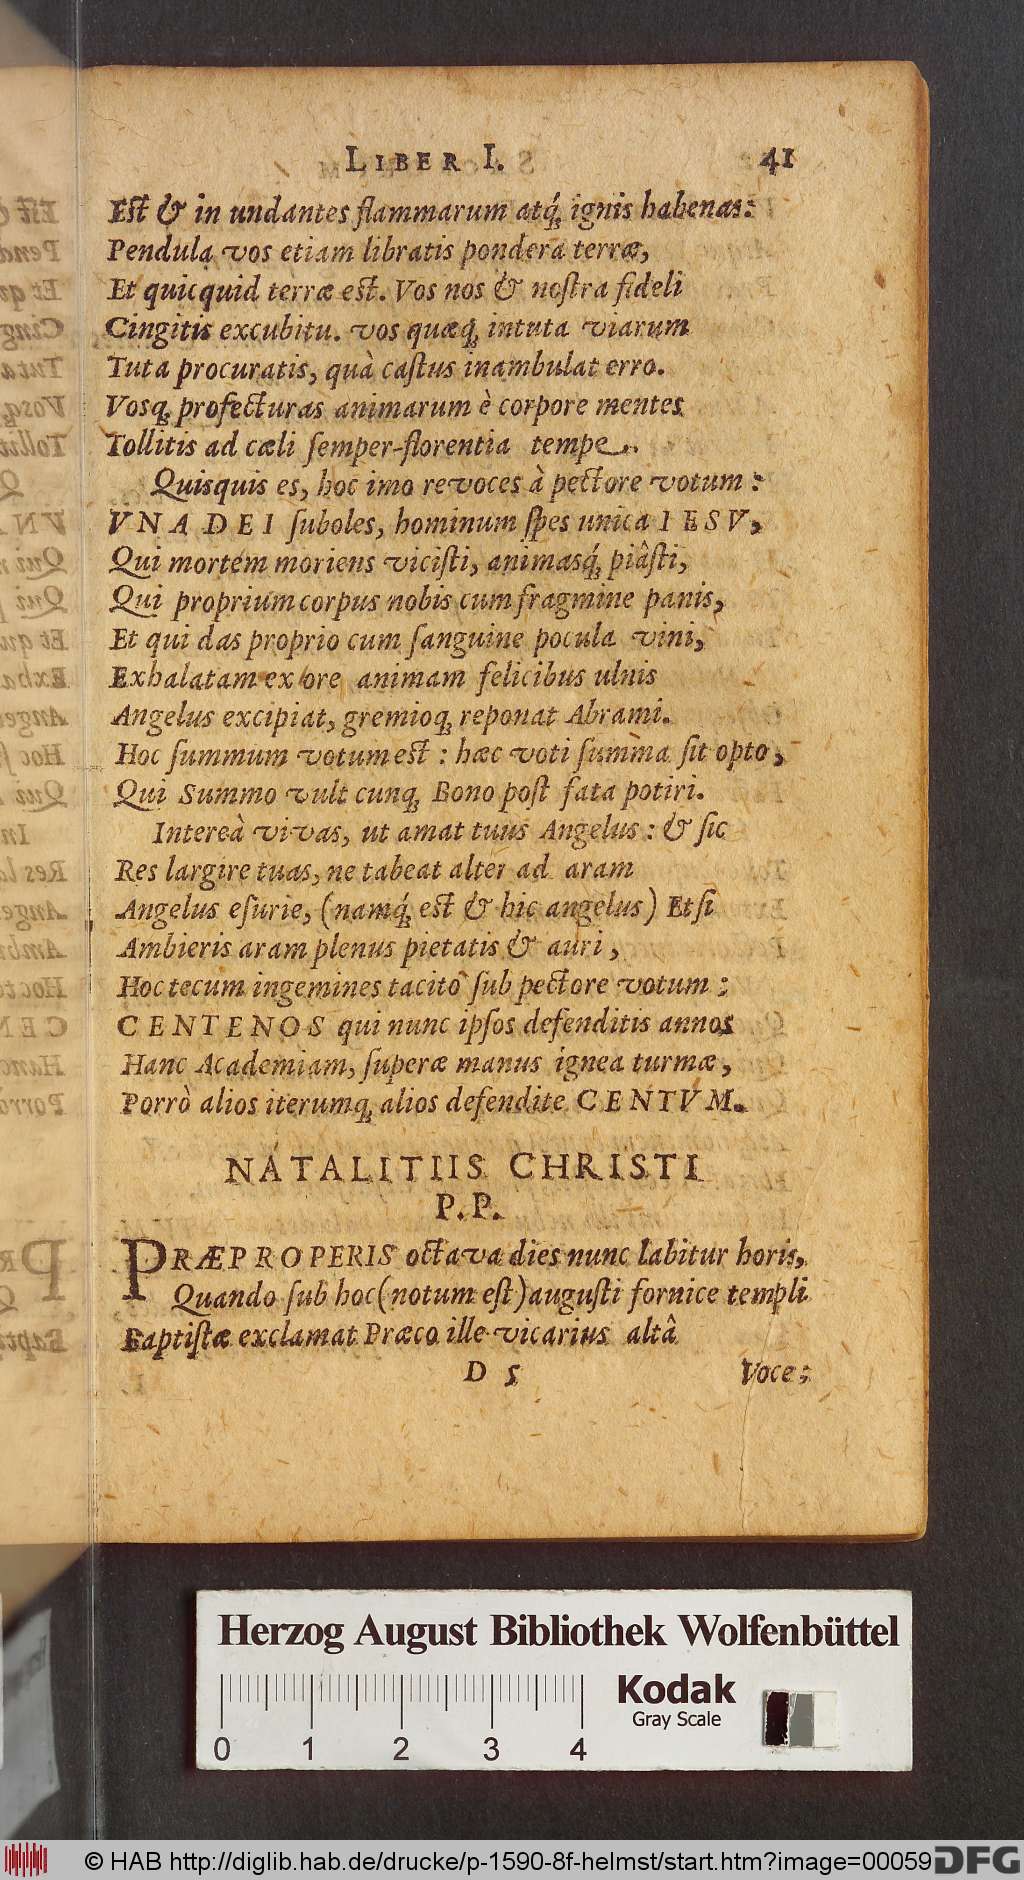 LIBER I. 41
Est & in undantes flammarum atq́; ignis habenas:
Pendula vos etiam libratis pondera terræ,
Et quicquid terræ est. Vos nos & nostra fideli
Cingitis excubitu. vos quæq; intuta viarum
Tuta procuratis, quà castus inambulat erro.
Vosq; profecturas animarum è corpore mentes
Tollitis ad cæli semper-florentia tempe.
Quisquis es, hoc imo revoces à pectore votum:
VNA DEI suboles, hominum spes unica IESV,
Qui mortem moriens vicisti, animasq́; piâsti,
Qui proprium corpus nobis cum fragmine panis,
Et qui das proprio cum sanguine pocula vini,
Exhalatam ex ore animam felicibus ulnis
Angelus excipiat, gremioq; reponat Abrami.
Hoc summum votum est: hæc voti summa sit opto,
Qui Summo vult cunq; Bono post fata potiri.
Intereà vivas, ut amat tuus Angelus: & sic
Res largire tuas, ne tabeat alter ad aram
Angelus esurie, (namq́; est & hic angelus) Etsi
Ambieris aram plenus pietatis & auri,
Hoc tecum ingemines tacitò sub pectore votum:
CENTENOS qui nunc ipsos defenditis annos
Hanc Academiam, superæ manus ignea turmæ,
Porrò alios iterumq; alios defendite CENTVM.
NATALITIIS CHRISTI
P. P.
PRÆPROPERIS octava dies nunc labitur horis,
Quando sub hoc (notum est) augusti fornice templi
Baptistæ exclamat Præco ille vicarius altâ
D 5 Voce;
Herzog August Bibliothek Wolfenbüttel
Kodak
Gray Scale
0 1 2 3 4
© HAB http://diglib.hab.de/drucke/p-1590-8f-helmst/start.htm?image=00059 DFG